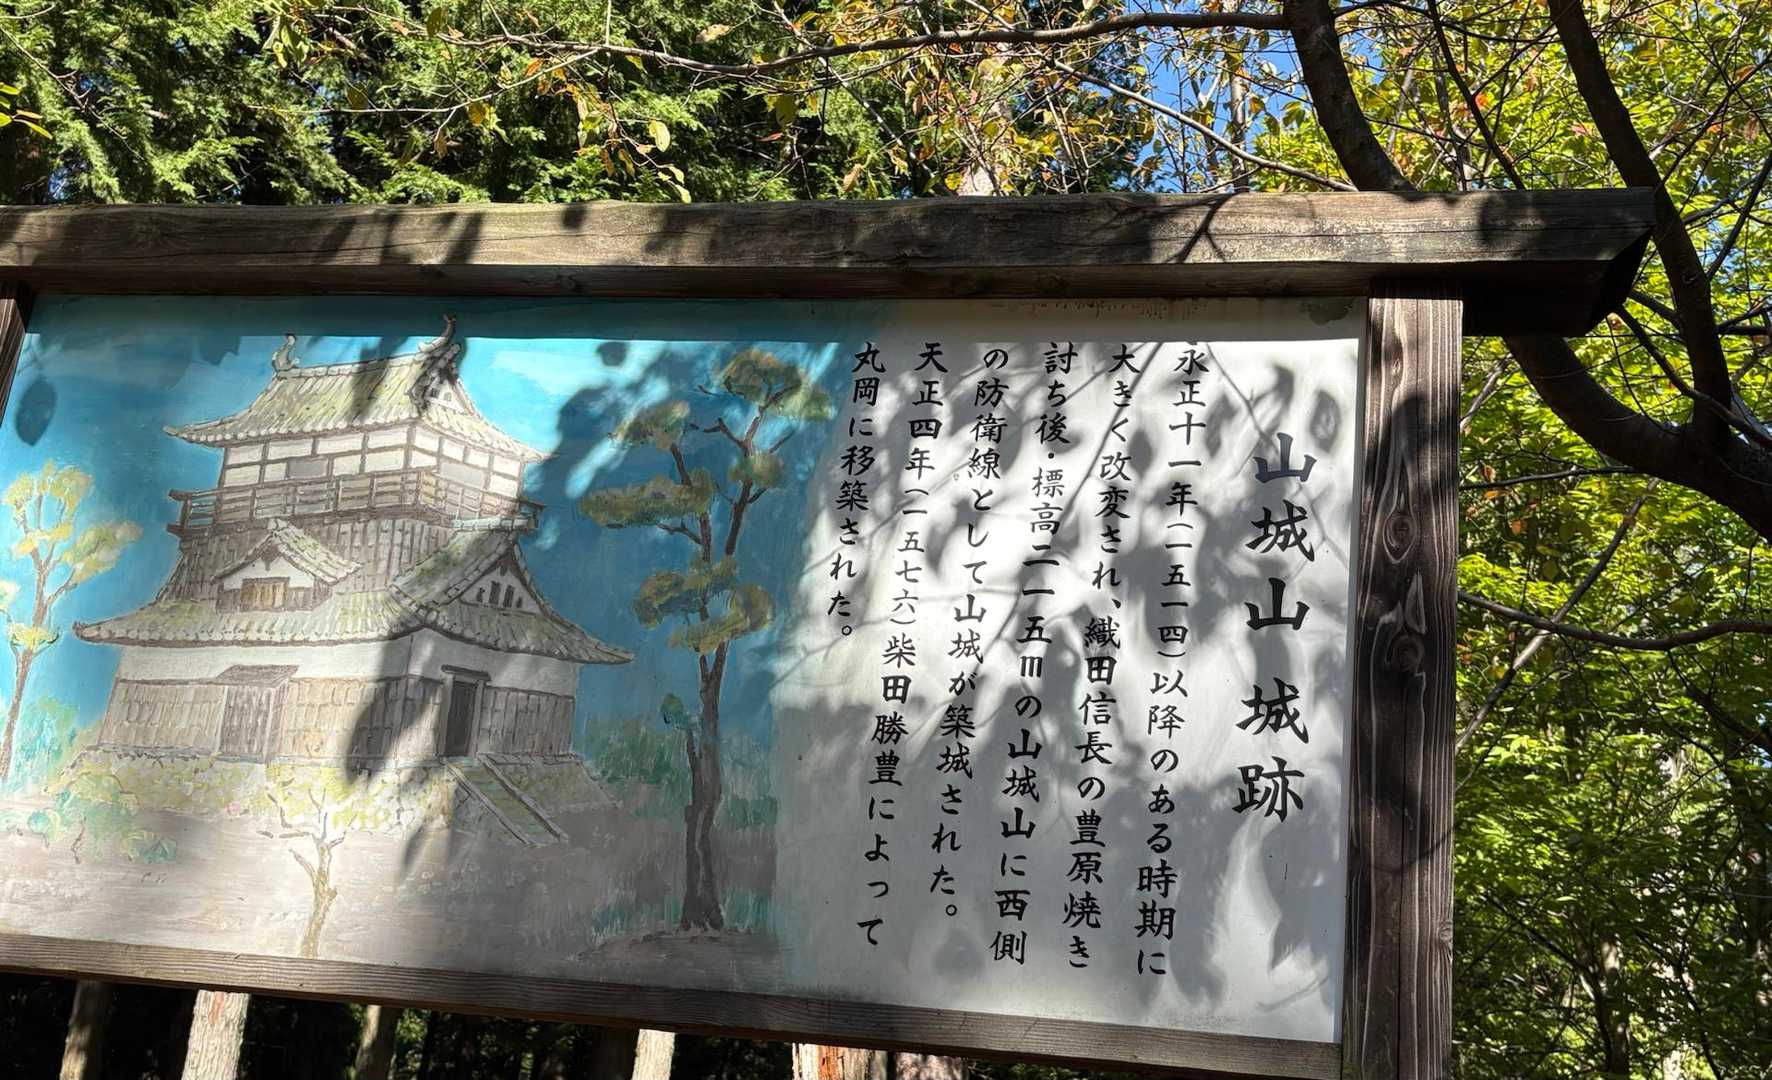 山城山城跡
永正十一年（一五一四）以降のある時期に
大きく改変され、織田信長の豊原焼き
討ち後・標高二一五mの山城山に西側
の防衛線として山城が築城された。
天正四年（一五七六）柴田勝豊によって
丸岡に移築された。